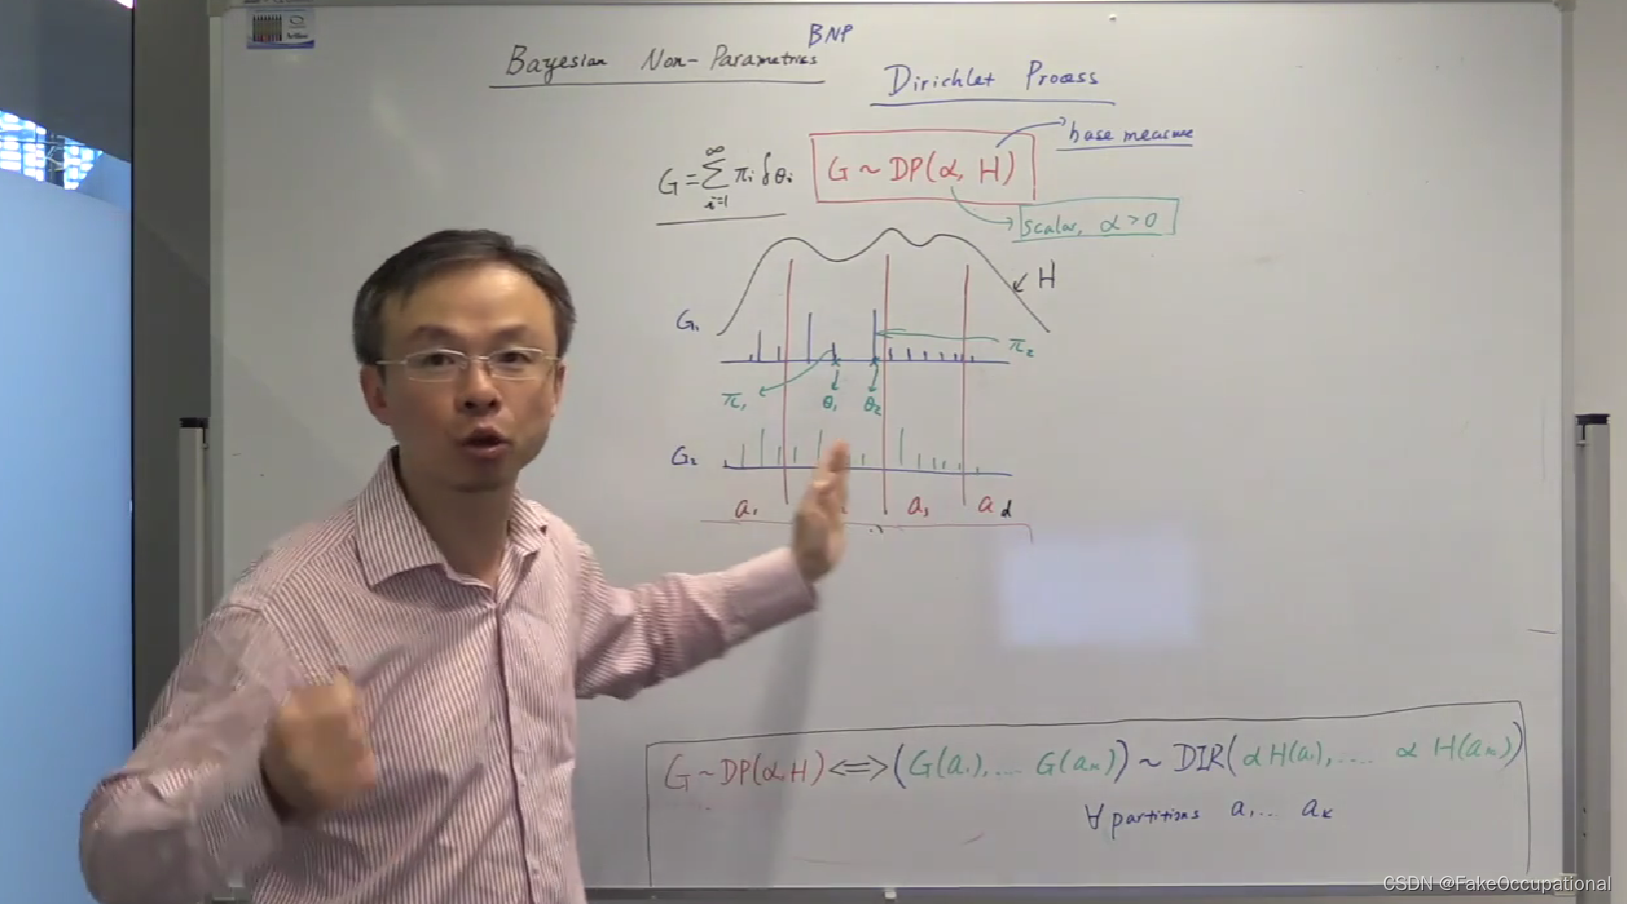 BNP
Bayesian Non-Parametrics
Dirichlet Process
base measure
G = ∑_{i=1}^{∞} π_i δ_{θ_i}
G ~ DP(α, H)
scalar, α > 0
H
G₁
π₂
π₁ θ₁ θ₂
G₂
a₁ a₃ a d
G ~ DP(α, H) <=> (G(a₁), .... G(aₖ)) ~ DIR(α H(a₁), .... α H(aₖ))
∀ partitions a₁ ... aₖ
CSDN @FakeOccupational